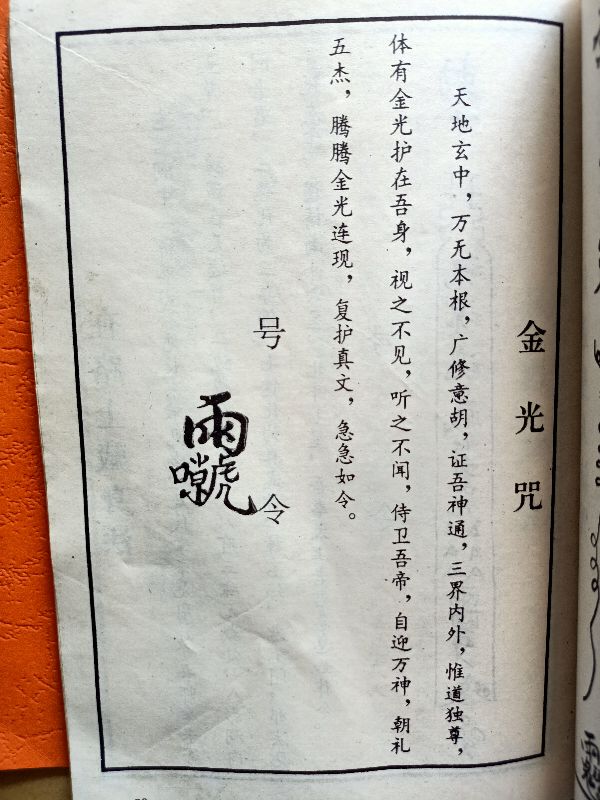 金光咒
天地玄中，万无本根，广修意胡，证吾神通，三界内外，惟道独尊，
体有金光护在吾身，视之不见，听之不闻，侍卫吾帝，自迎万神，朝礼
五杰，腾腾金光连现，复护真文，急急如令。
号令